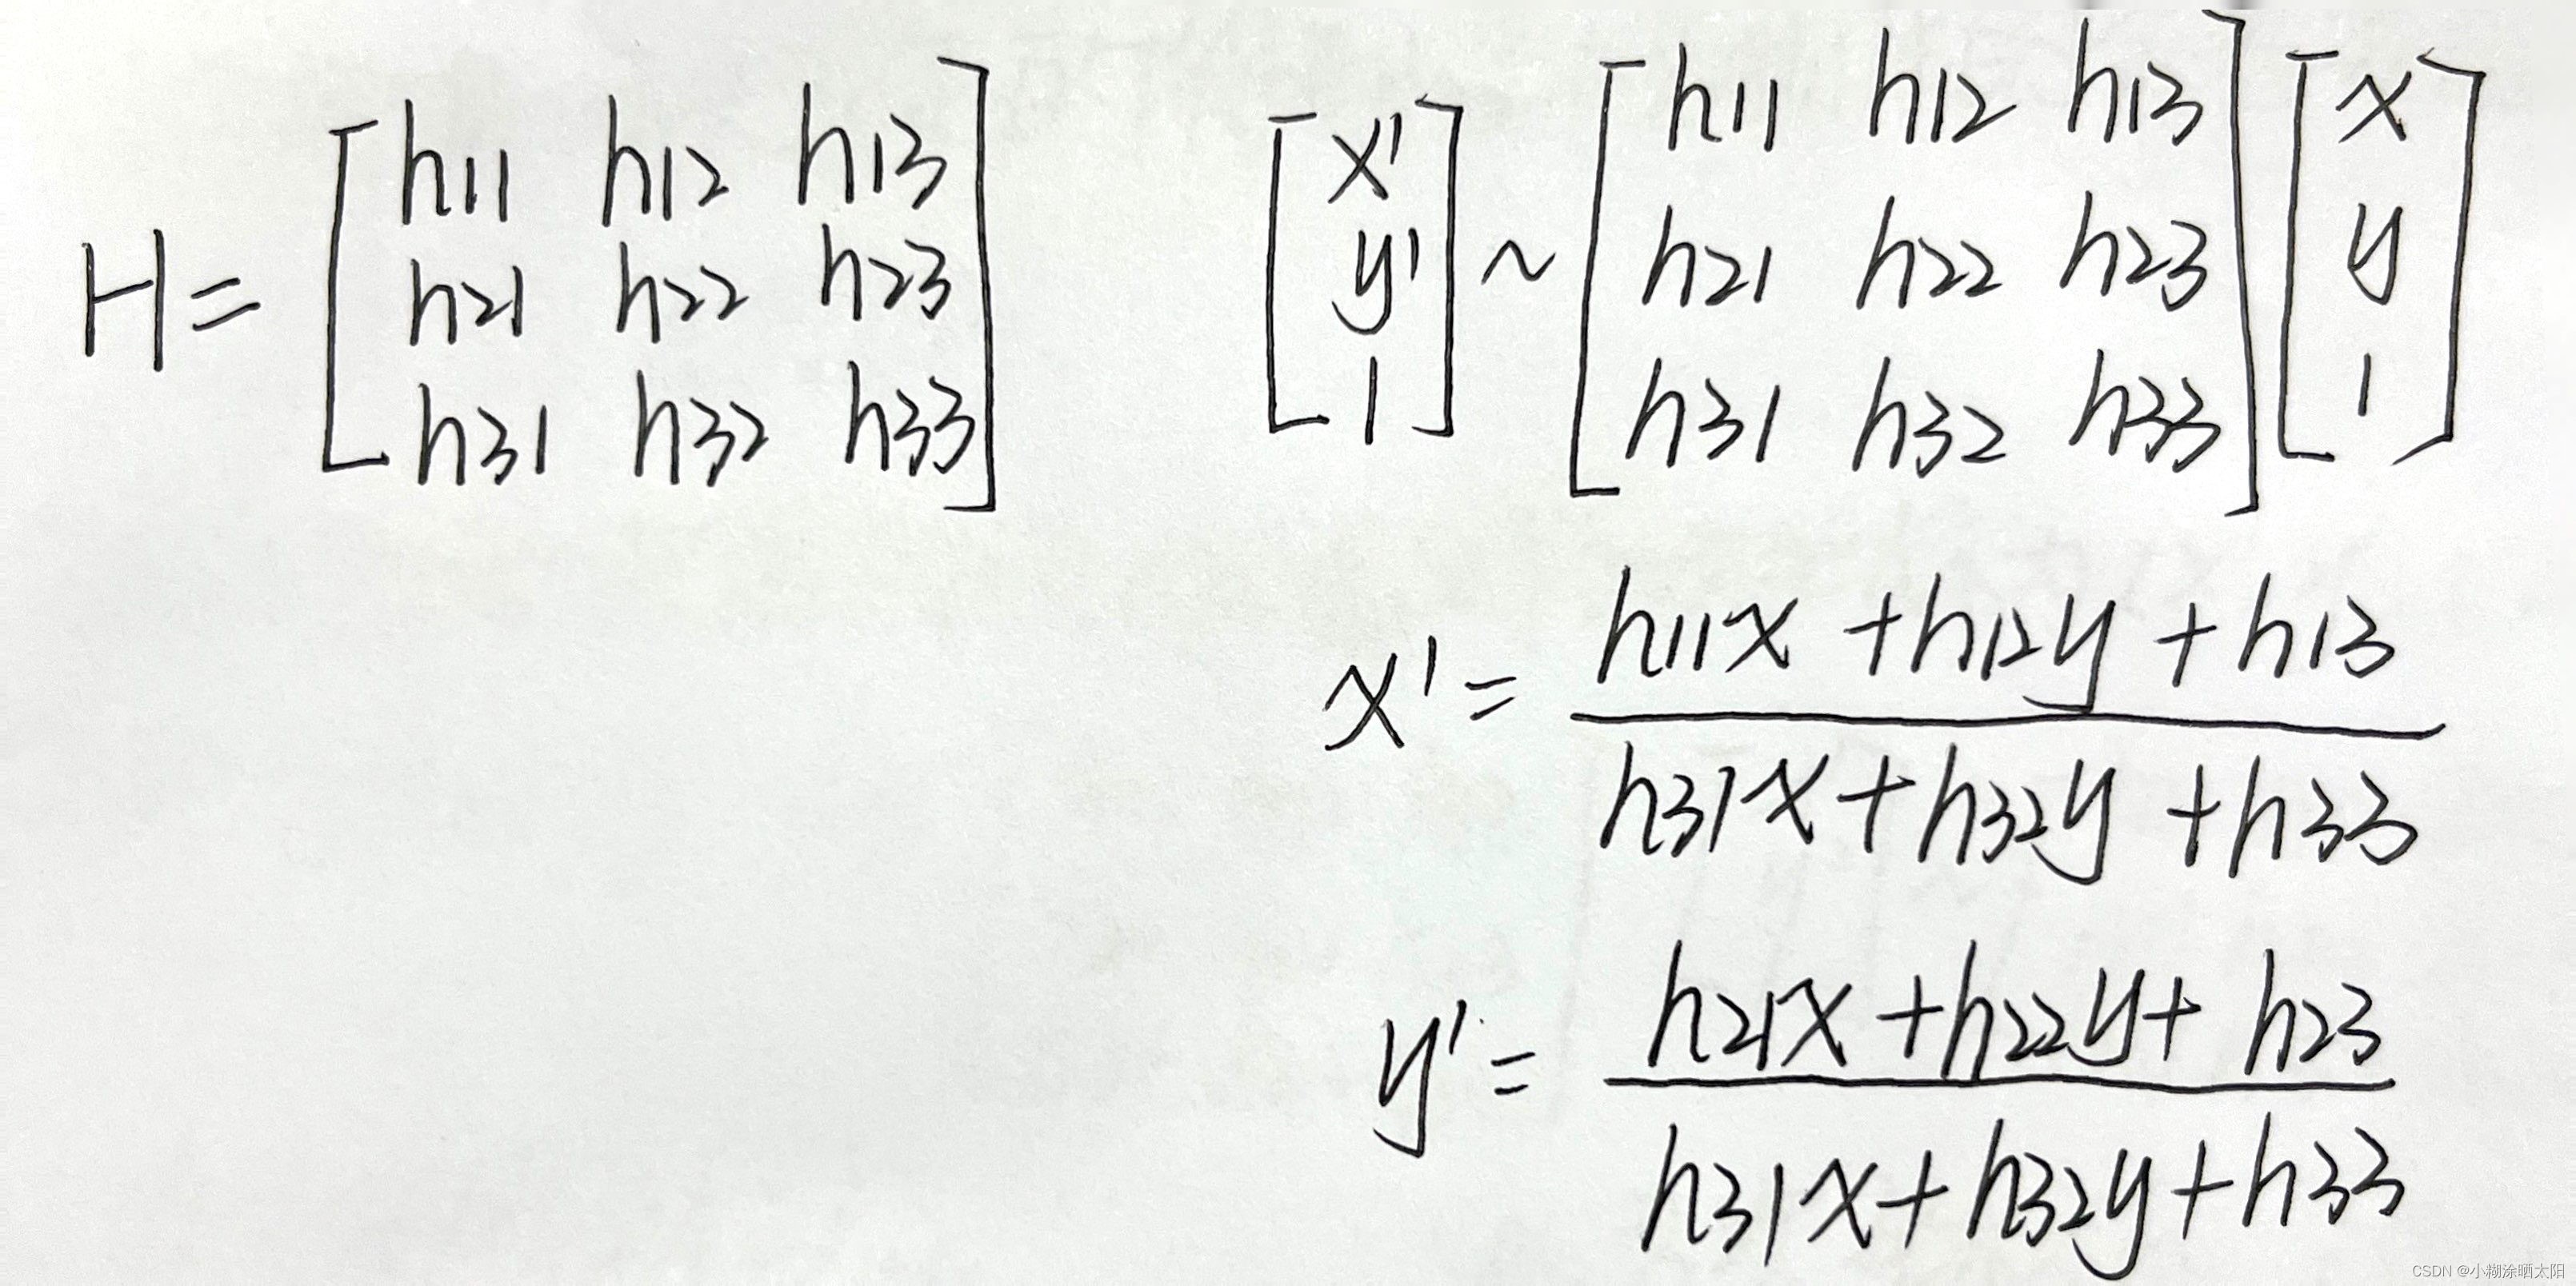 H = [h11 h12 h13
h21 h22 h23
h31 h32 h33]
[x'
y'
1] ~ [h11 h12 h13
h21 h22 h23
h31 h32 h33] [x
y
1]
x' = (h11x + h12y + h13) / (h31x + h32y + h33)
y' = (h21x + h22y + h23) / (h31x + h32y + h33)
CSDN @小糊涂晒太阳